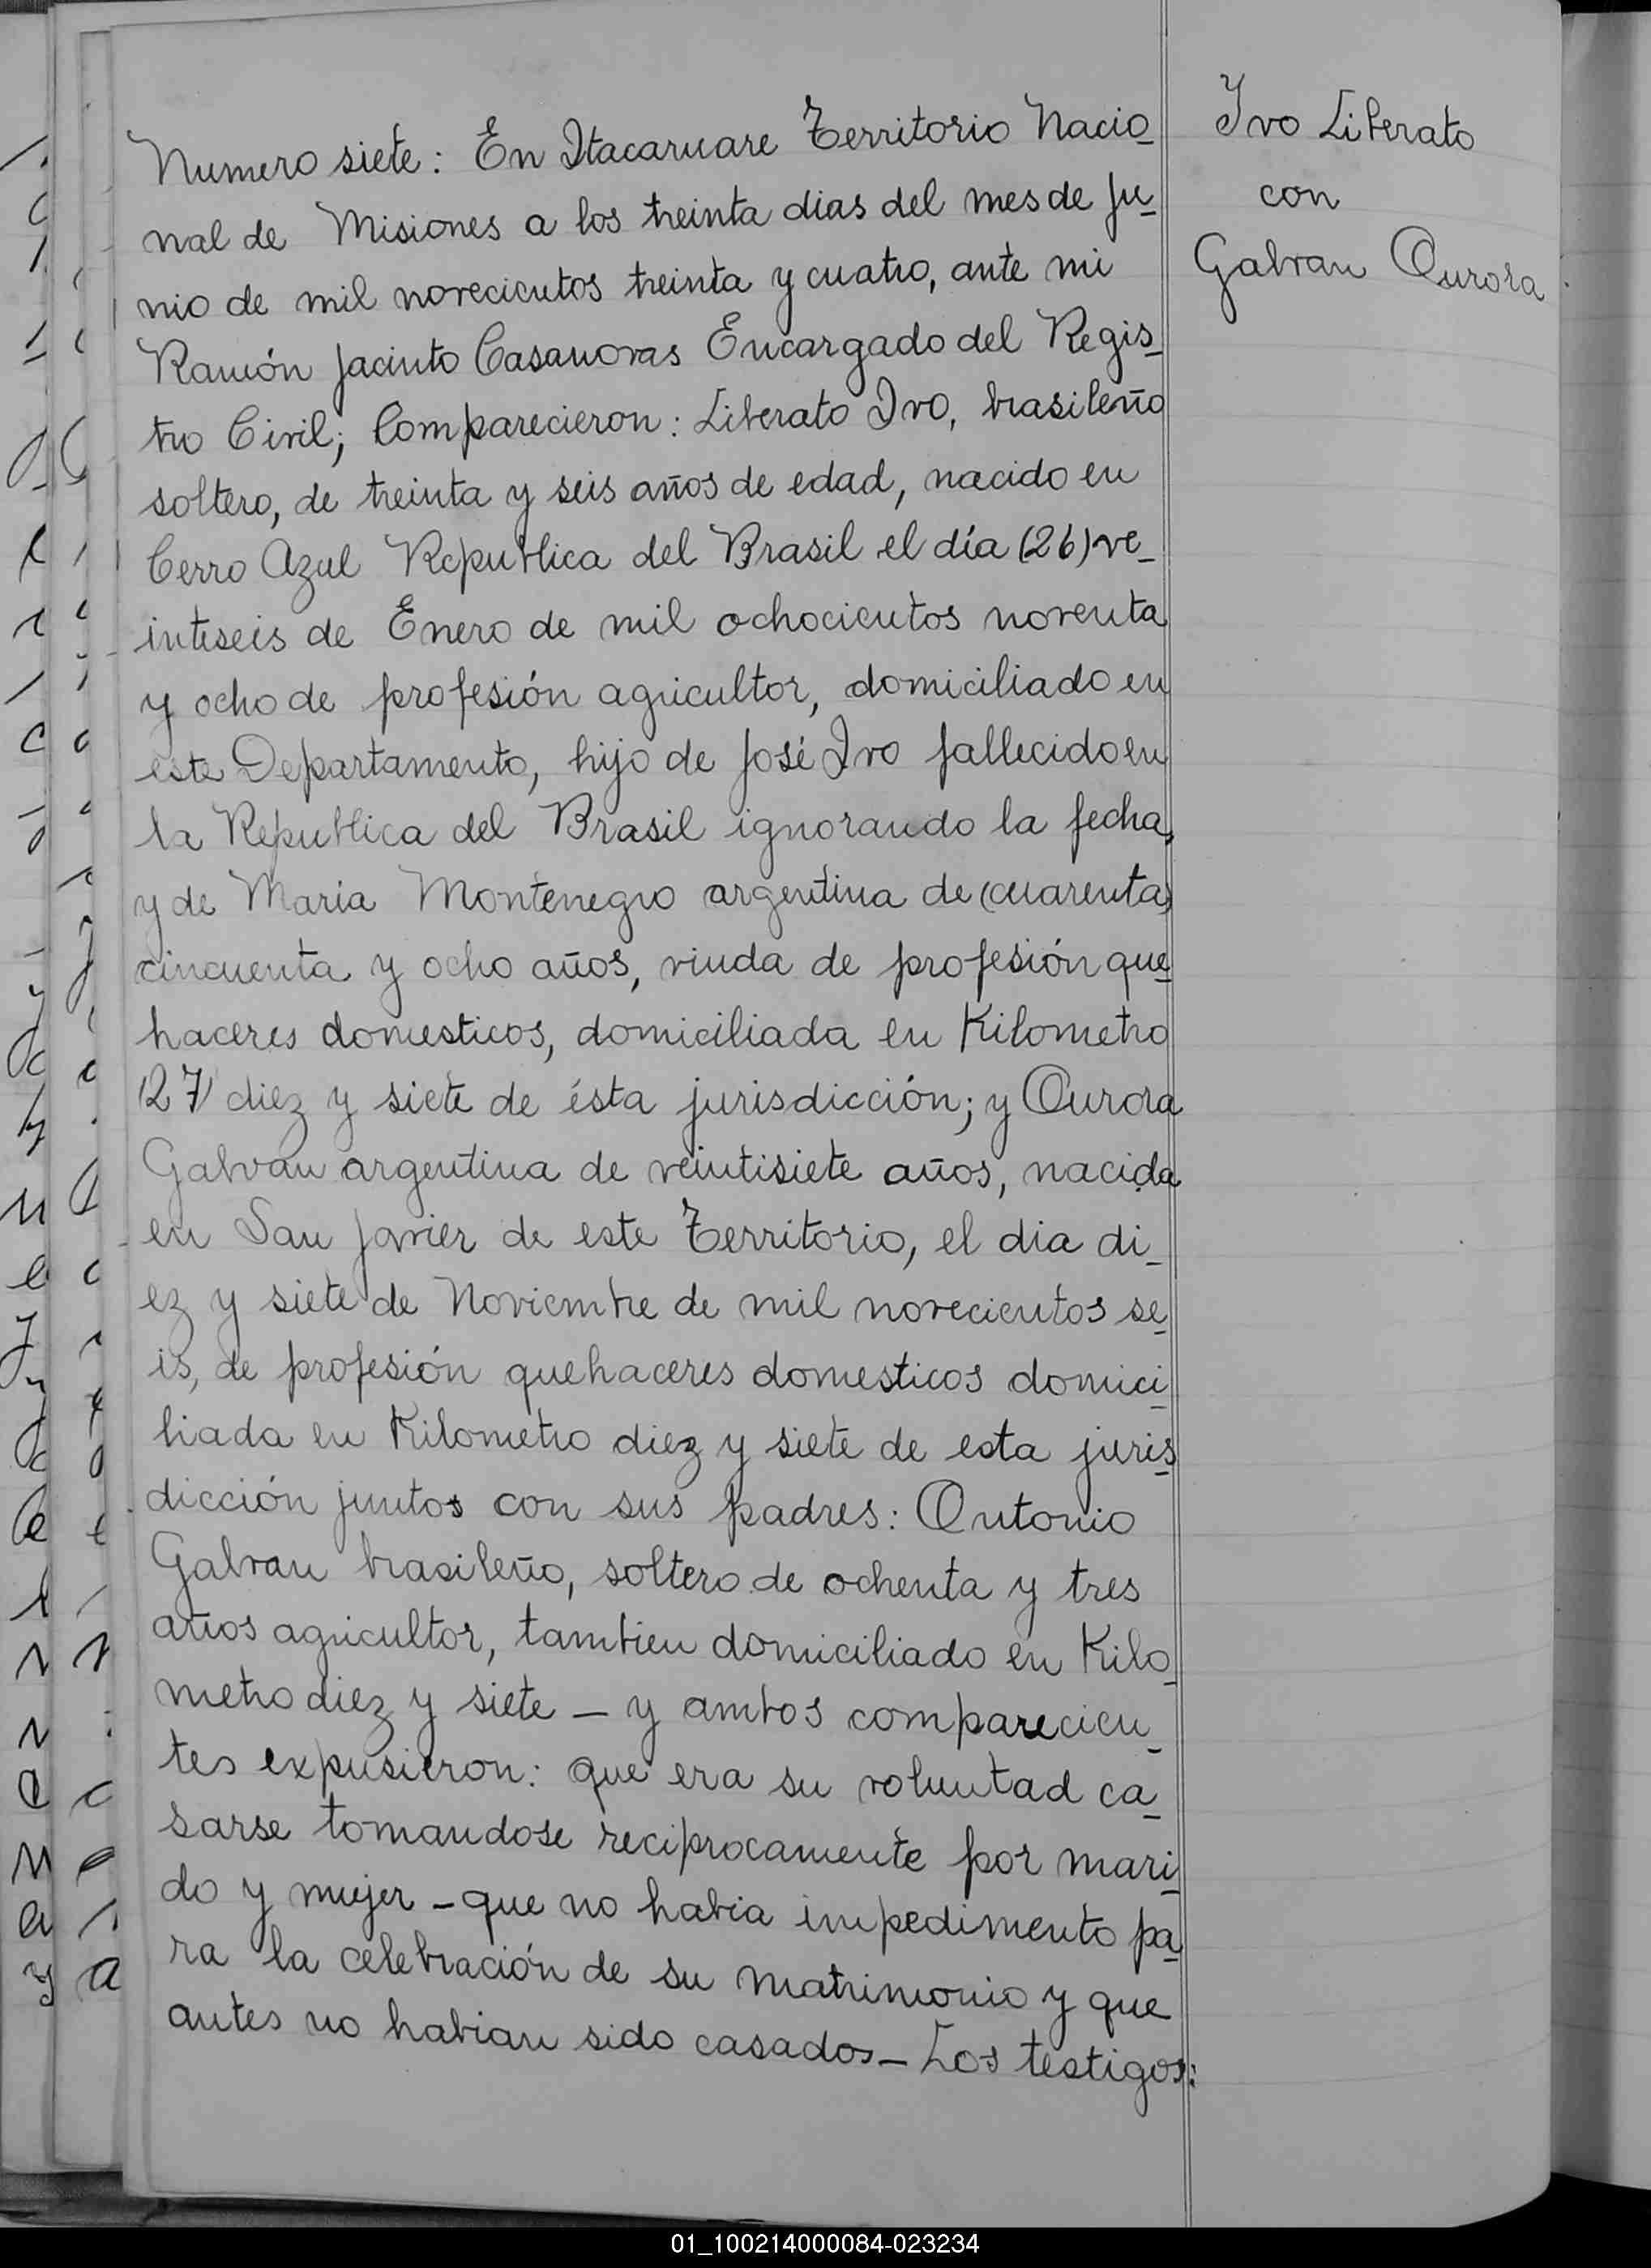 Numero siete: En Itacaruare Territorio Nacio-
nal de Misiones a los treinta dias del mes de Ju-
nio de mil novecientos treinta y cuatro, ante mi
Ramón Jacinto Casanovas Encargado del Regis-
tro Civil; Comparecieron: Liberato Ivo, brasileño
soltero, de treinta y seis años de edad, nacido en
Cerro Azul Republica del Brasil el día (26) ve-
inteseis de Enero de mil ochocientos noventa
y ocho de profesión agricultor, domiciliado en
este Departamento, hijo de José Ivo fallecido en
la Republica del Brasil ignorando la fecha,
y de Maria Montenegro argentina de (cuarenta)
cincuenta y ocho años, viuda de profesión que-
haceres domesticos, domiciliada en Kilometro
(27) diez y siete de ésta jurisdicción; y Aurora
Galvan argentina de veintisiete años, nacida
en San Javier de este Territorio, el dia di-
ez y siete de Noviembre de mil novecientos se-
is, de profesión quehaceres domesticos domici-
liada en Kilometro diez y siete de esta juris-
dicción juntos con sus padres: Antonio
Galvan brasileño, soltero de ochenta y tres
años agricultor, tambien domiciliado en Kilo-
metro diez y siete — y ambos comparecien-
tes expusieron: que era su voluntad ca-
sarse tomandose reciprocamente por mari-
do y mujer - que no habia impedimento pa-
ra la celebración de su matrimonio y que
antes no habian sido casados — Los testigos:
Ivo Liberato
con
Galvan Aurora
01_100214000084-023234